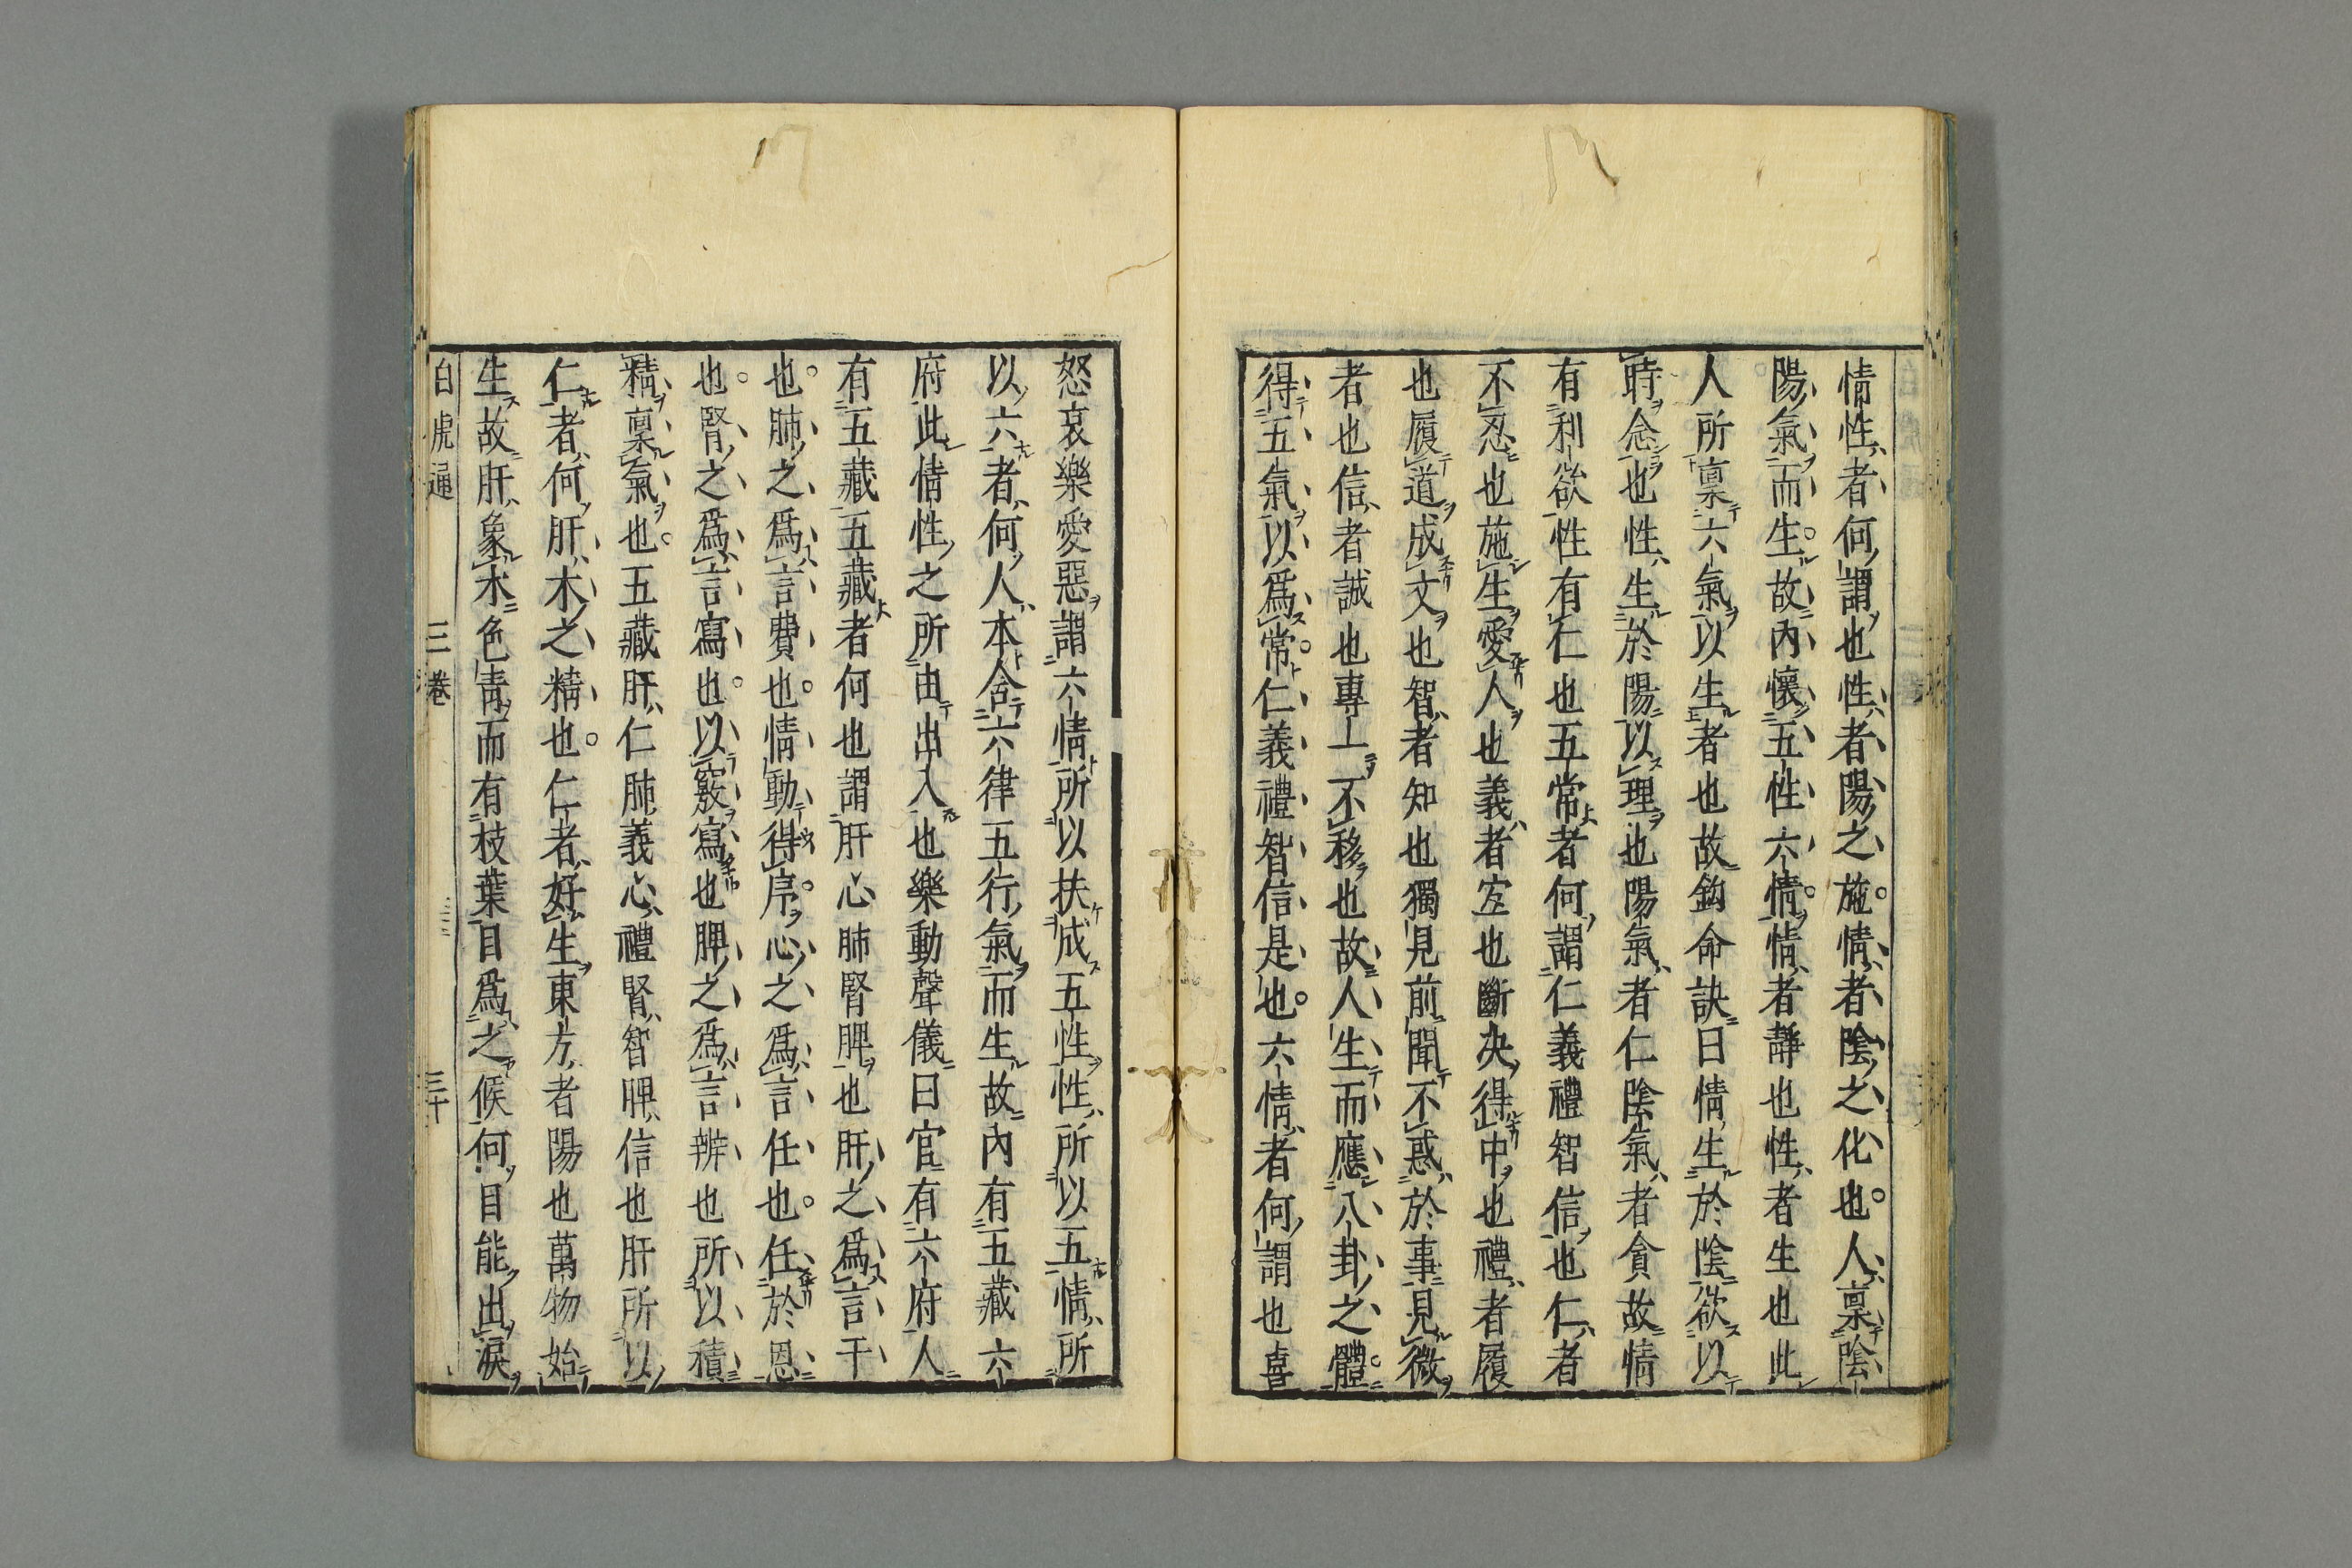 情性者何謂也性者陽之施情者陰之化也人稟陰
陽氣而生故內懷五性六情情者靜也性者生也此
人所稟六氣以生者也故鈎命訣曰情生於陰欲以
時念也性生於陽以理也陽氣者仁陰氣者貪故情
有利欲性有仁也五常者何謂仁義禮智信也仁者
不忍也施生愛人也義者宜也斷决得中也禮者履
也履道成文也智者知也獨見前聞不惑於事見微
者也信者誠也專一不移也故人生而應八卦之體
得五氣以爲常仁義禮智信是也六情者何謂也喜
怒哀樂愛惡謂六情所以扶成五性性所以五情所
以六者何人本含六律五行氣而生故內有五藏六
府此情性之所由出入也樂動聲儀曰官有六府人
有五藏五藏者何也謂肝心肺腎脾也肝之爲言干
也肺之爲言費也情動得序心之爲言任也任於恩
也腎之爲言寫也以竅寫也脾之爲言辨也所以積
精稟氣也五藏肝仁肺義心禮腎智脾信也肝所以
仁者何肝木之精也仁者好生東方者陽也萬物始
生故肝象木色青而有枝葉目爲之候何目能出淚
白虎通 三卷 三十